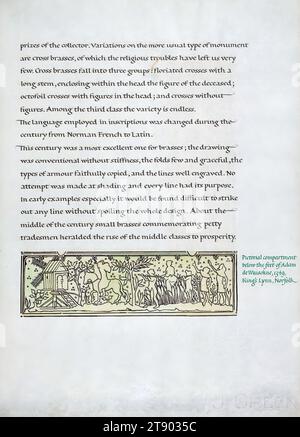 prizes of the collector. Variations on the more usual type of monument
are cross brasses, of which the religious troubles have left us very
few. Cross brasses fall into three groups: floriated crosses with a
long stem, enclosing within the head the figure of the deceased;
octofoil crosses with figures in the head; and crosses without
figures. Among the third class the variety is endless.
The language employed in inscriptions was changed during the
century from Norman French to Latin.
This century was a most excellent one for brasses; the drawing
was conventional without stiffness, the folds few and graceful, the
types of armour faithfully copied, and the lines well engraved. No
attempt was made at shading and every line had its purpose.
In early examples especially it would be found difficult to strike
out any line without spoiling the whole design. About the
middle of the century small brasses commemorating petty
tradesmen heralded the rise of the middle classes to prosperity.
Pictorial compartment
below the feet of Adam
de Walsokne, 1349,
King's Lynn, Norfolk.
alamy
Image ID: 2T9035C
www.alamy.com